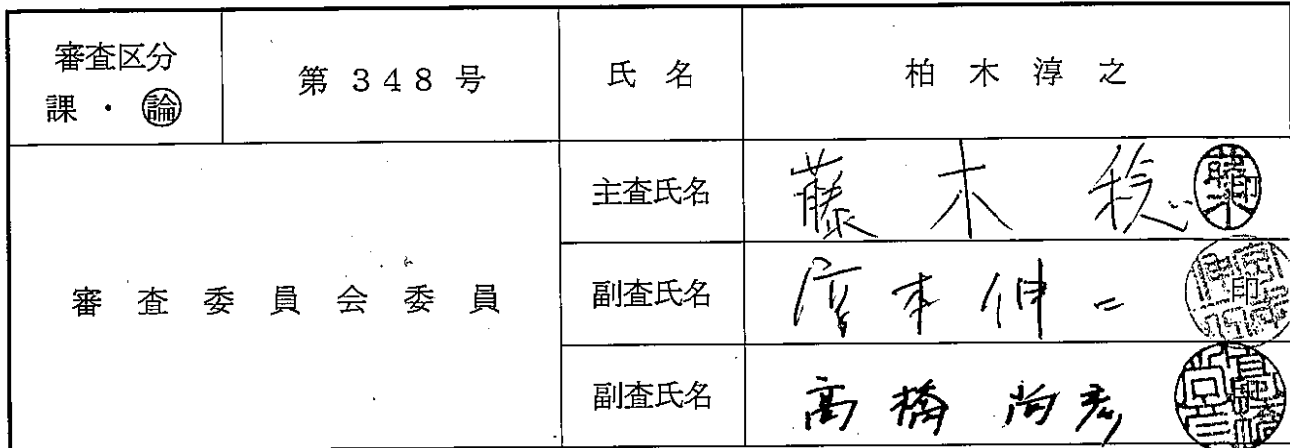 審査区分
課 ・ 論
第 348 号
氏 名
柏 木 淳 之
審 査 委 員 会 委 員
主査氏名
藤 木 稔 印
副査氏名
本 伸 二 印
副査氏名
高 橋 尚 彦